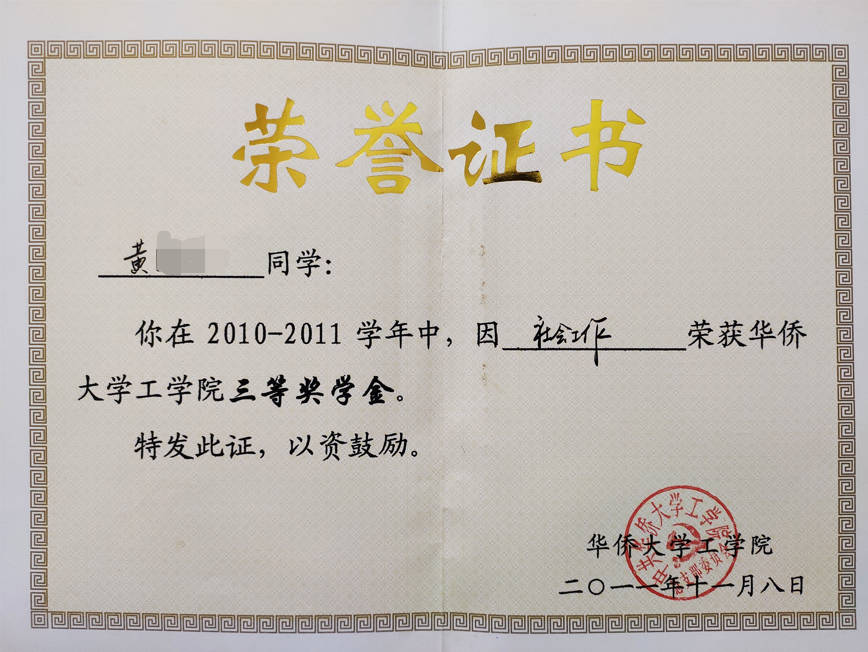 荣誉证书
黄 同学：
你在 2010-2011 学年中，因 社会工作 荣获华侨
大学工学院三等奖学金。
特发此证，以资鼓励。
华侨大学工学院
二〇一一年十一月八日
中共华侨大学工学院总支部委员会